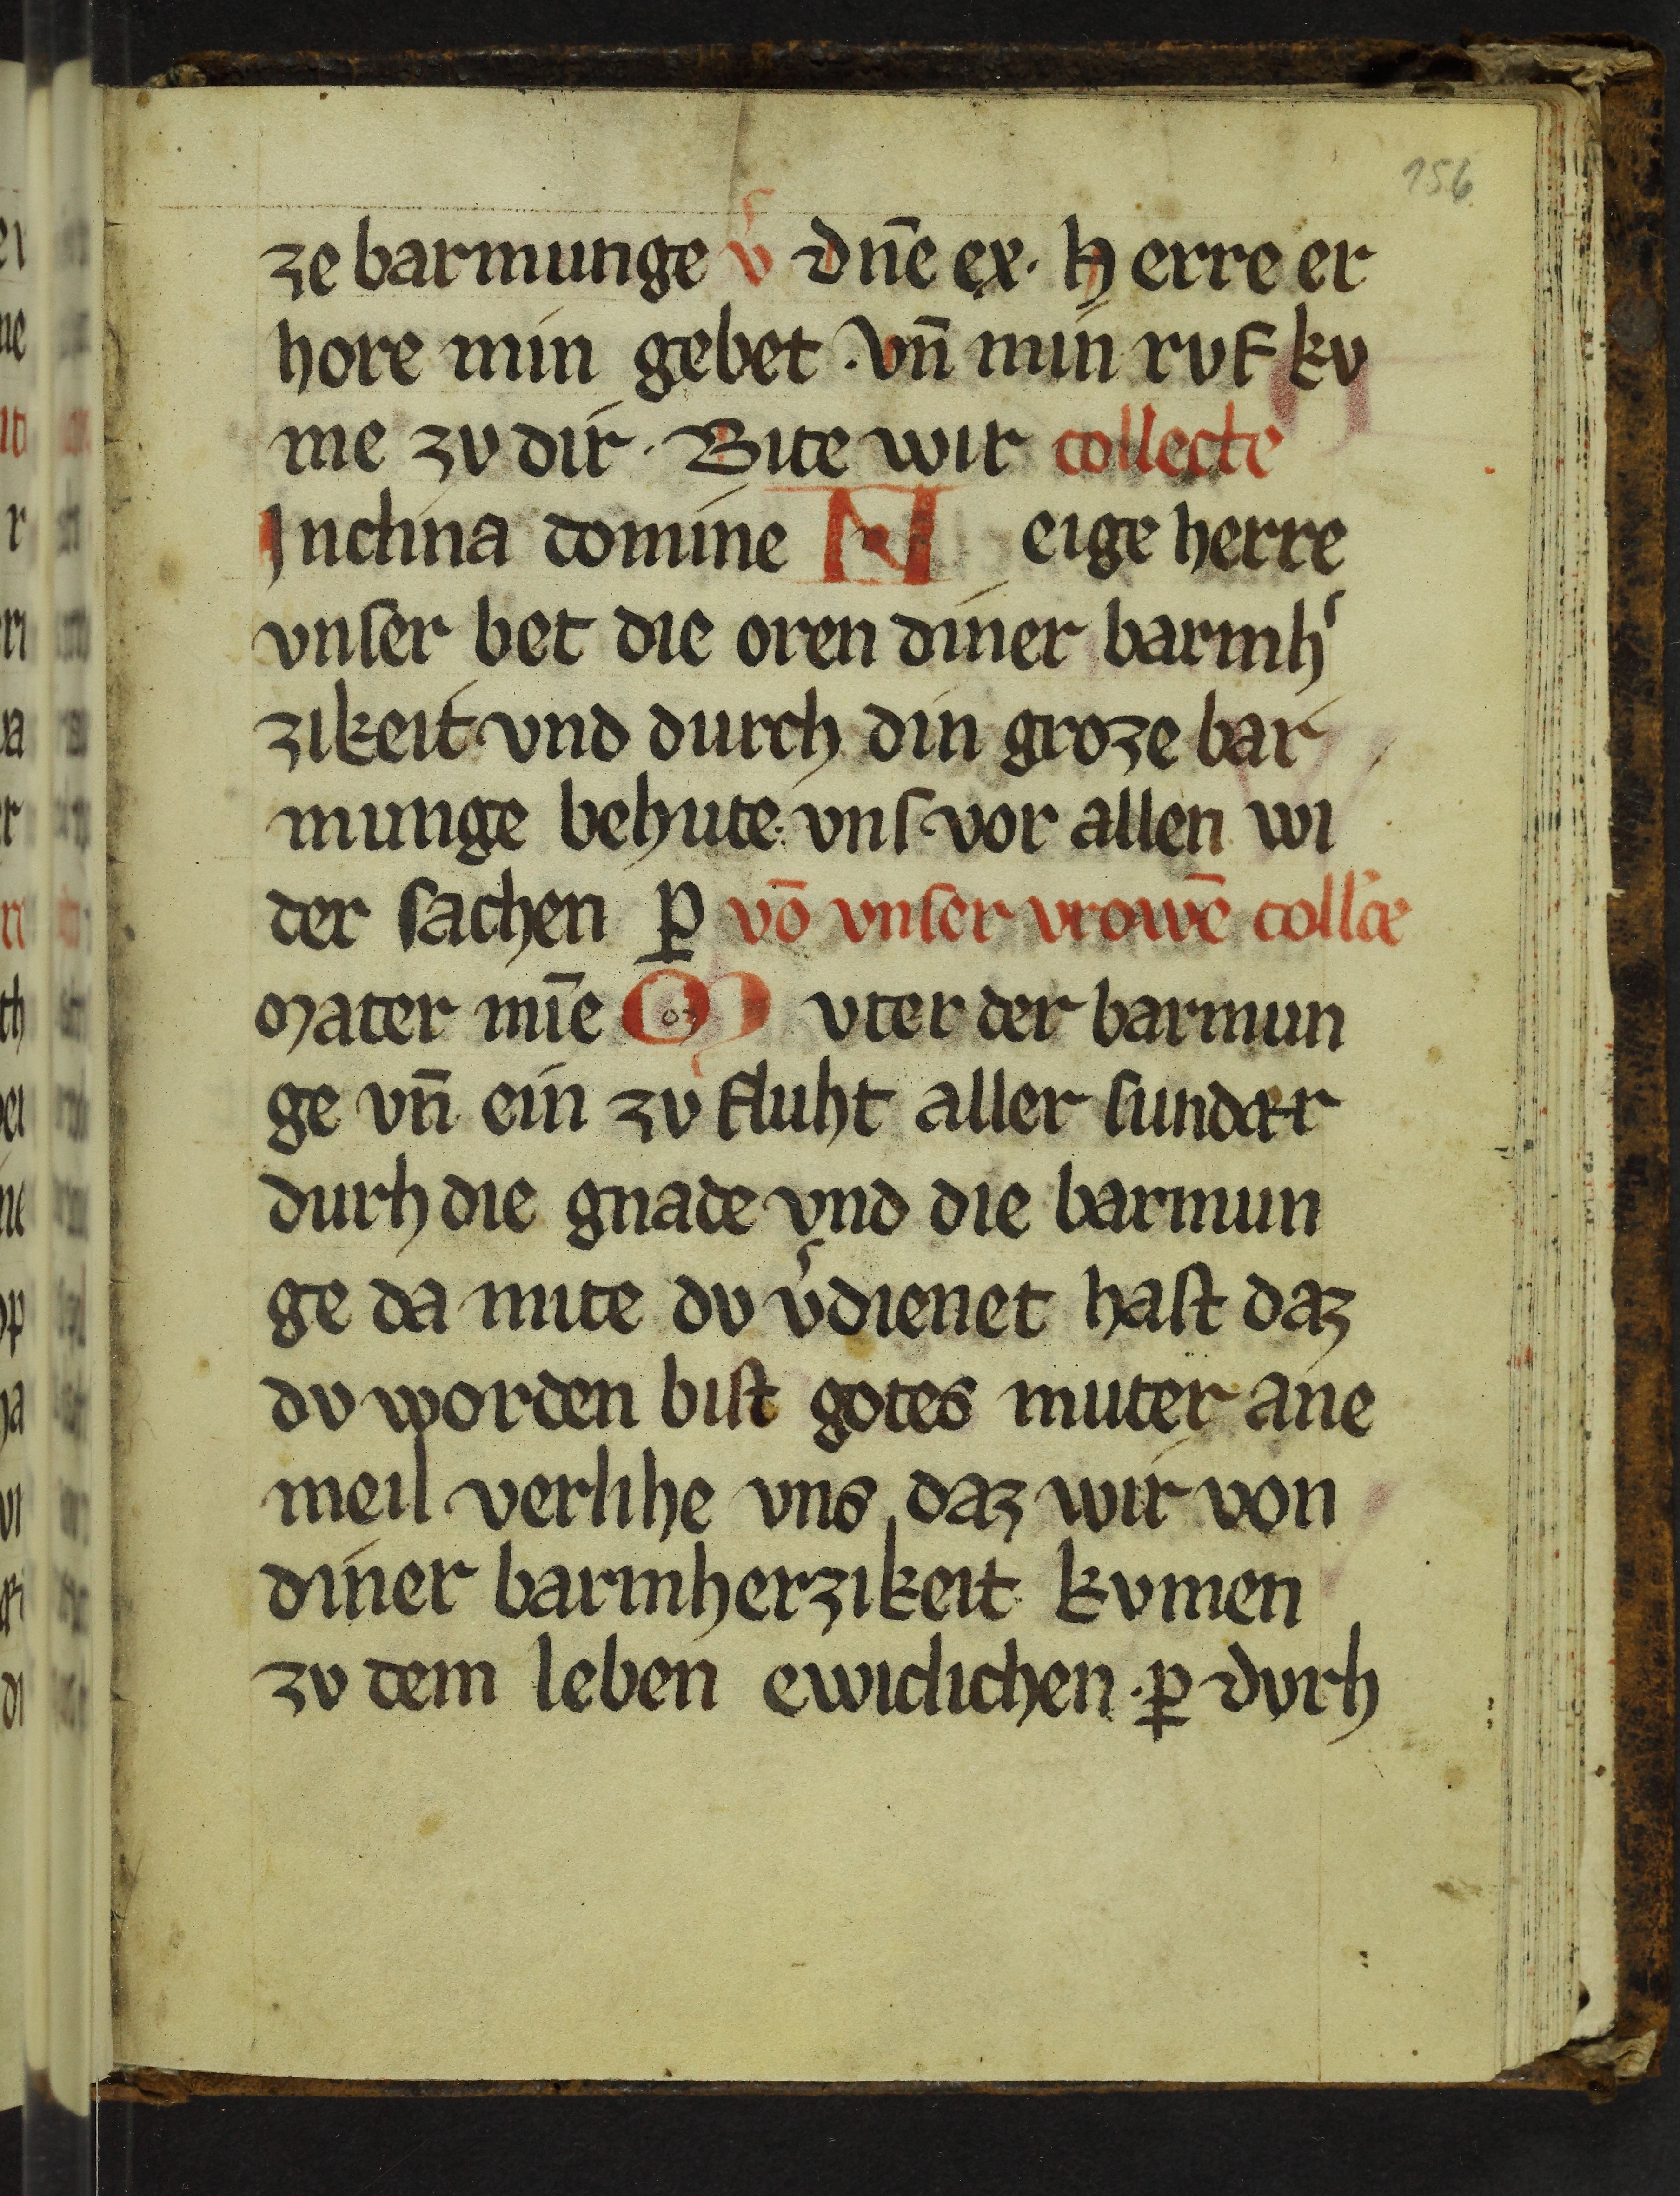 156
ze barmunge v᷒ dn̄e ex· herre er
hore min gebet · vn̄ min rvf kv
me zv dir · Bite wir collecte
Inclina domine Neige herre
vnſer bet die oren diner barmh᷒
zikeit vnd durch din groze bar
munge behute vnſ vor allen wi
der ſachen ꝑ vō vnſer vrowē coll̄e
Mater mīe Mvter der barmun
ge vn̄ ein zv fluht aller ſunder
durh die gnade vnd die barmun
ge da mite dv v᷒dienet haſt daz
dv worden biſt gotes muter ane
meil verlihe vns daz wir von
diner barmherzikeit kvmen
zv dem leben ewiclichen · ꝑ dvrh